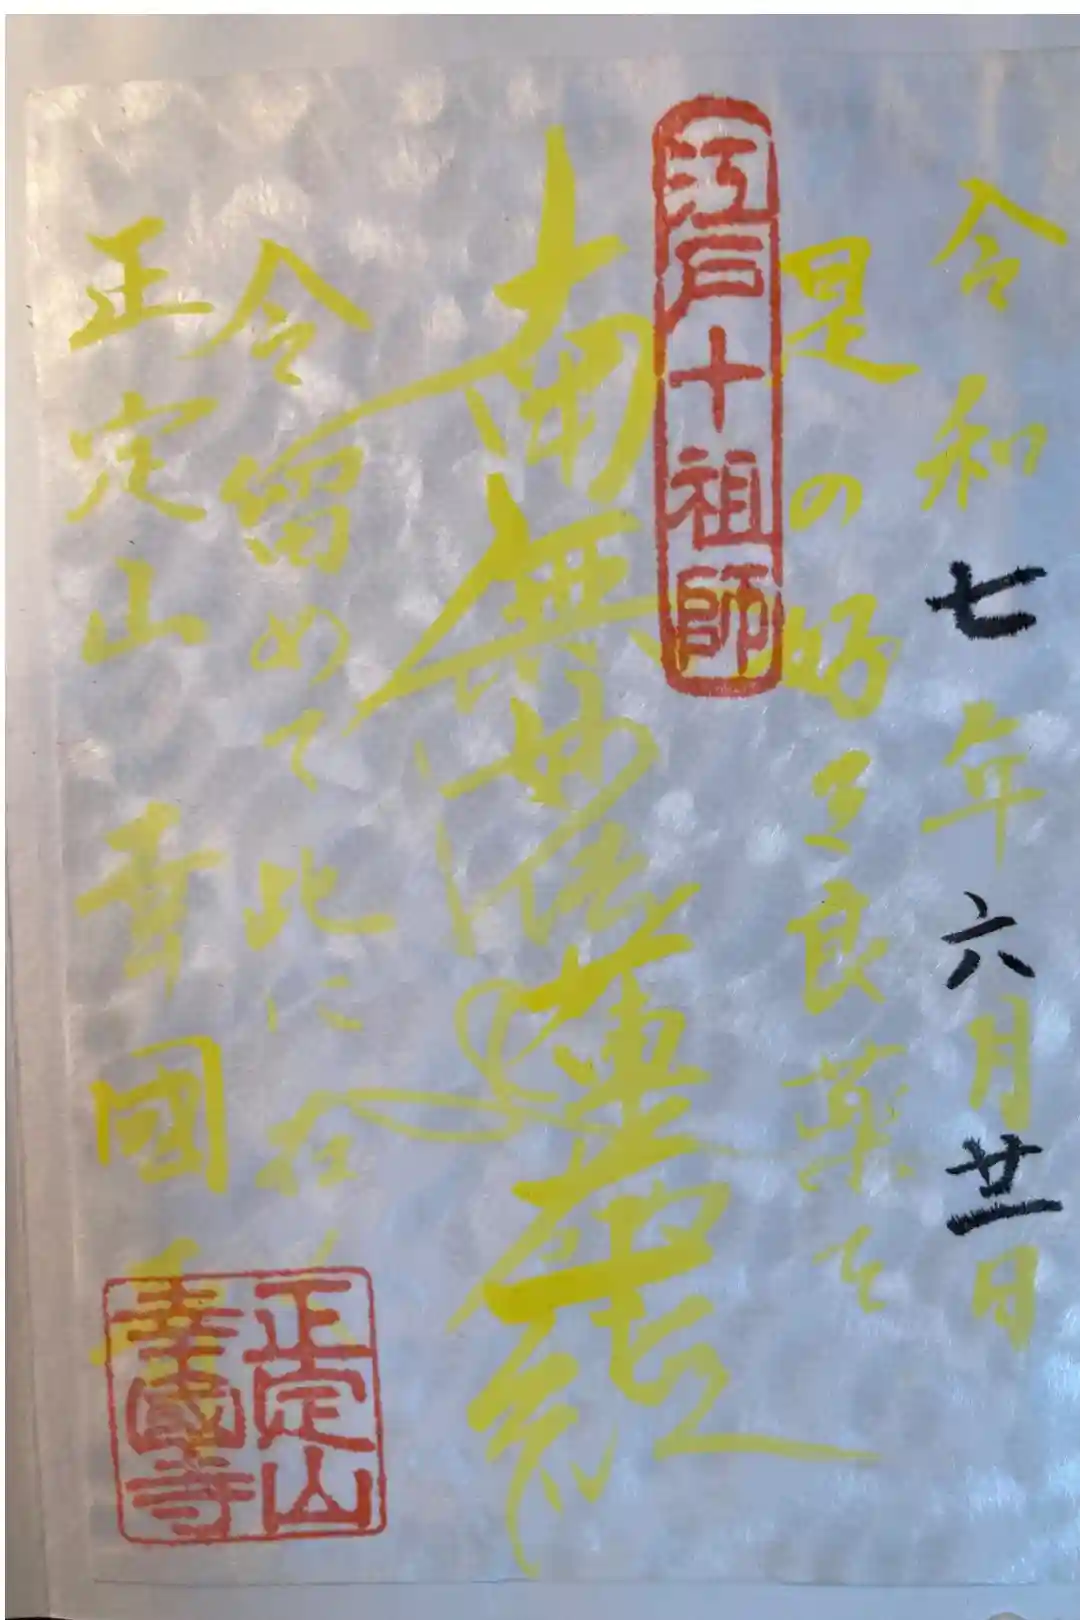 令和七年六月廿一日
是の好き良薬を
江戸十祖師
南無妙法蓮華經
今留めて此に在く
正定山 幸國寺
正定山
幸國寺